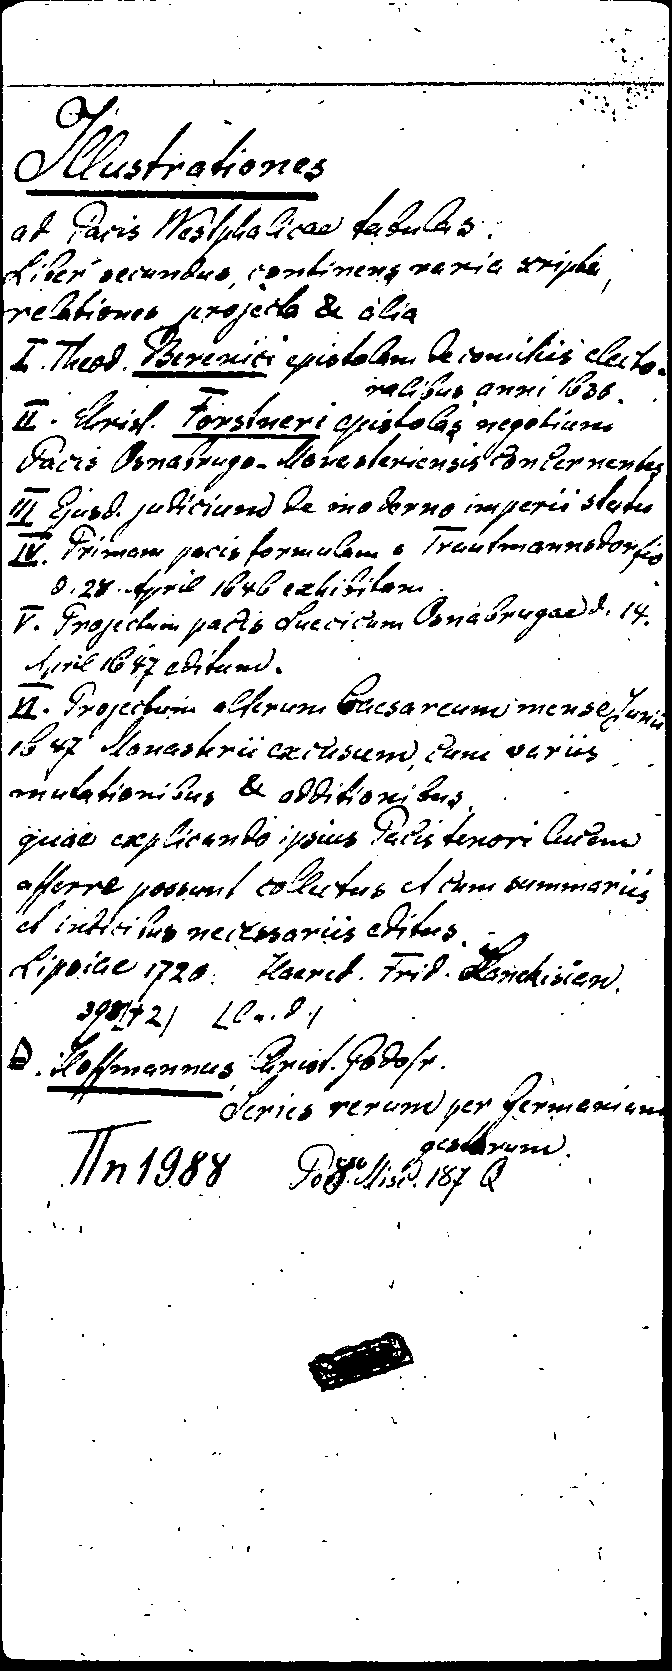 Illustrationes
ad Pacis Westphalicae tabulas.
Liber secundus, continens varia scripta,
relationes projecta & alia
I. Theod. Berenici epistolam de comitiis electo-
ralibus anni 1636.
II. Christ. Forstneri epistolas negotium
Pacis Osnabrugo-Monasteriensis concernentes
III Ejusd. judicium de moderno imperii statu
IV. Primam pacis formulam a Trautmannsdorfio
d. 28. April 1646 exhibitam
V. Projectum pacis Suecicum Osnabrugae d. 14.
April 1647 editum.
VI. Projectum alterum Caesareum mense Junii
1647 Monasterii excusum, cum variis
mutationibus & additionibus,
quae explicando ipsius Pacis tenori lucem
afferre possunt collectus et cum summariis
et indicibus necessariis editus.
Lipsiae 1720. Haered. Frid. Lanckisian.
D. Hoffmannus, Christ. Godofr.
Series rerum per Germaniam
gestarum.
IIn 1988 Misc. 187 Q